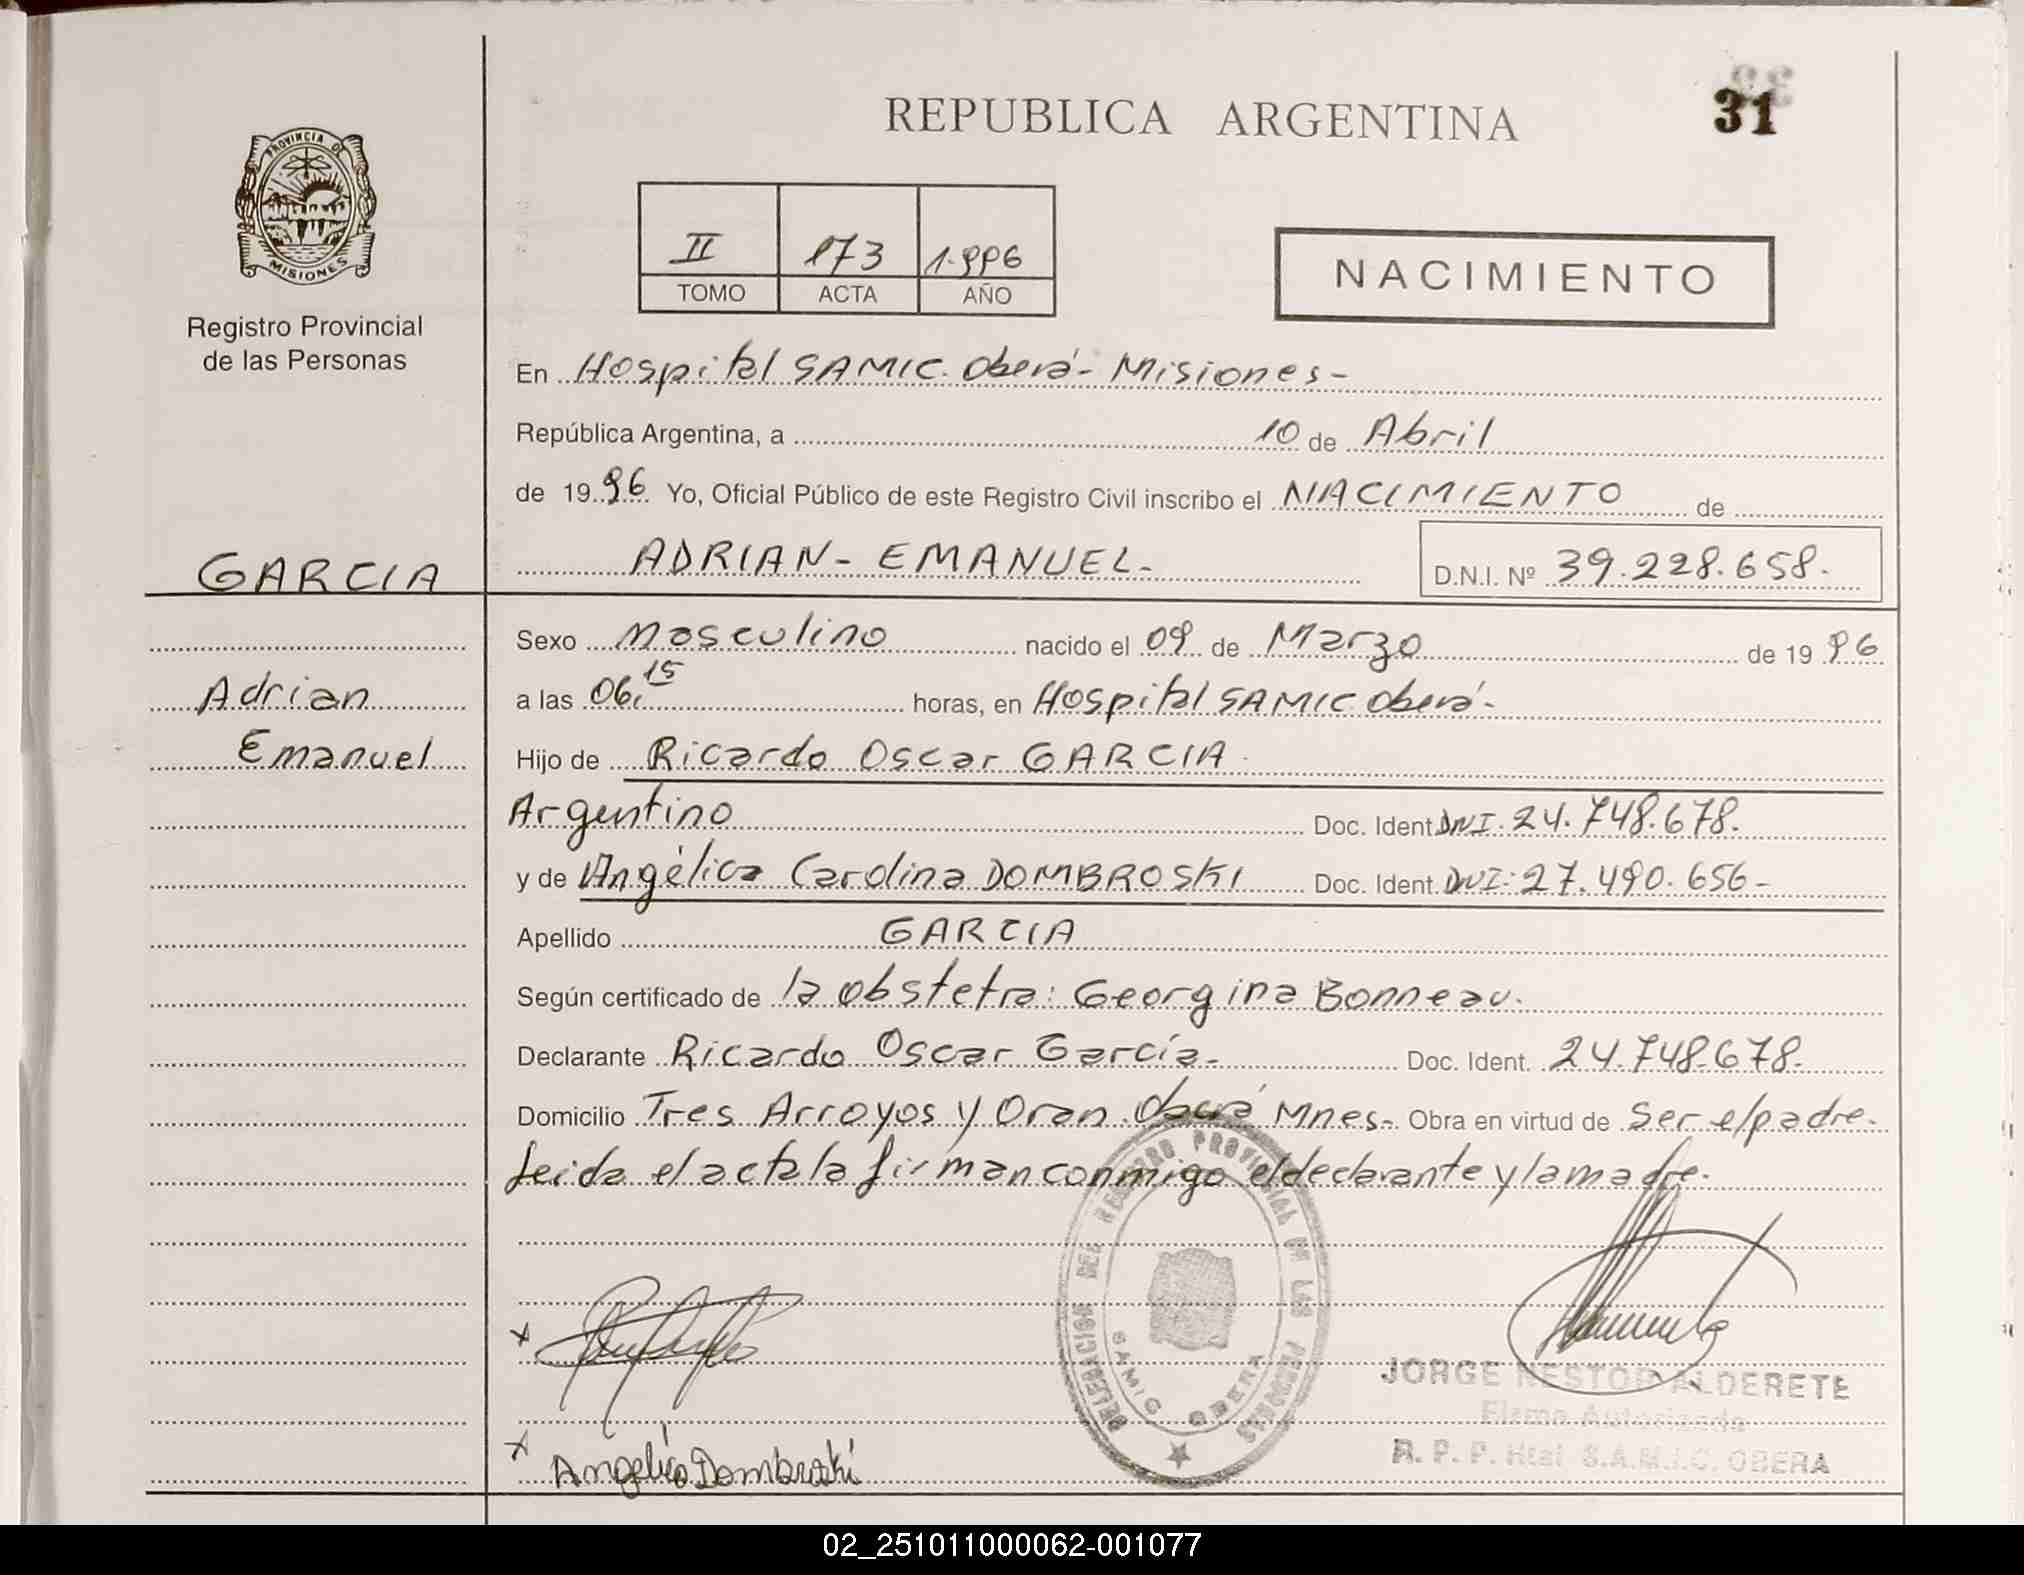 REPUBLICA ARGENTINA
31
PROVINCIA DE
MISIONES
Registro Provincial
de las Personas
II 173 1.996
TOMO ACTA AÑO
NACIMIENTO
En Hospital SAMIC. Oberá- Misiones-
República Argentina, a 10 de Abril
de 1996 Yo, Oficial Público de este Registro Civil inscribo el NACIMIENTO de
GARCIA
ADRIAN- EMANUEL- D.N.I. Nº 39.228.658.
Sexo Masculino nacido el 09 de Marzo de 1996
Adrian
a las 06.15 horas, en Hospital SAMIC Oberá-
Emanuel
Hijo de Ricardo Oscar GARCIA
Argentino Doc. Ident. DNI. 24.748.678.
y de Angélica Carolina DOMBROSKI Doc. Ident. DNI: 27.490.656-
Apellido GARCIA
Según certificado de la obstetra: Georgina Bonneau.
Declarante Ricardo Oscar García- Doc. Ident. 24.748.678.
Domicilio Tres Arroyos y Oran. Oberá Mnes- Obra en virtud de Ser el padre.
Leida el acta la firman conmigo el declarante y la madre.
DELEGACION DEL REGISTRO PROVINCIAL DE LAS PERSONAS
SAMIC OBERA
JORGE NESTOR ALDERETE
Firma Autorizada
R. P. P. Htal S.A.M.I.C. OBERA
x
x Angelica Dombroski
02_251011000062-001077